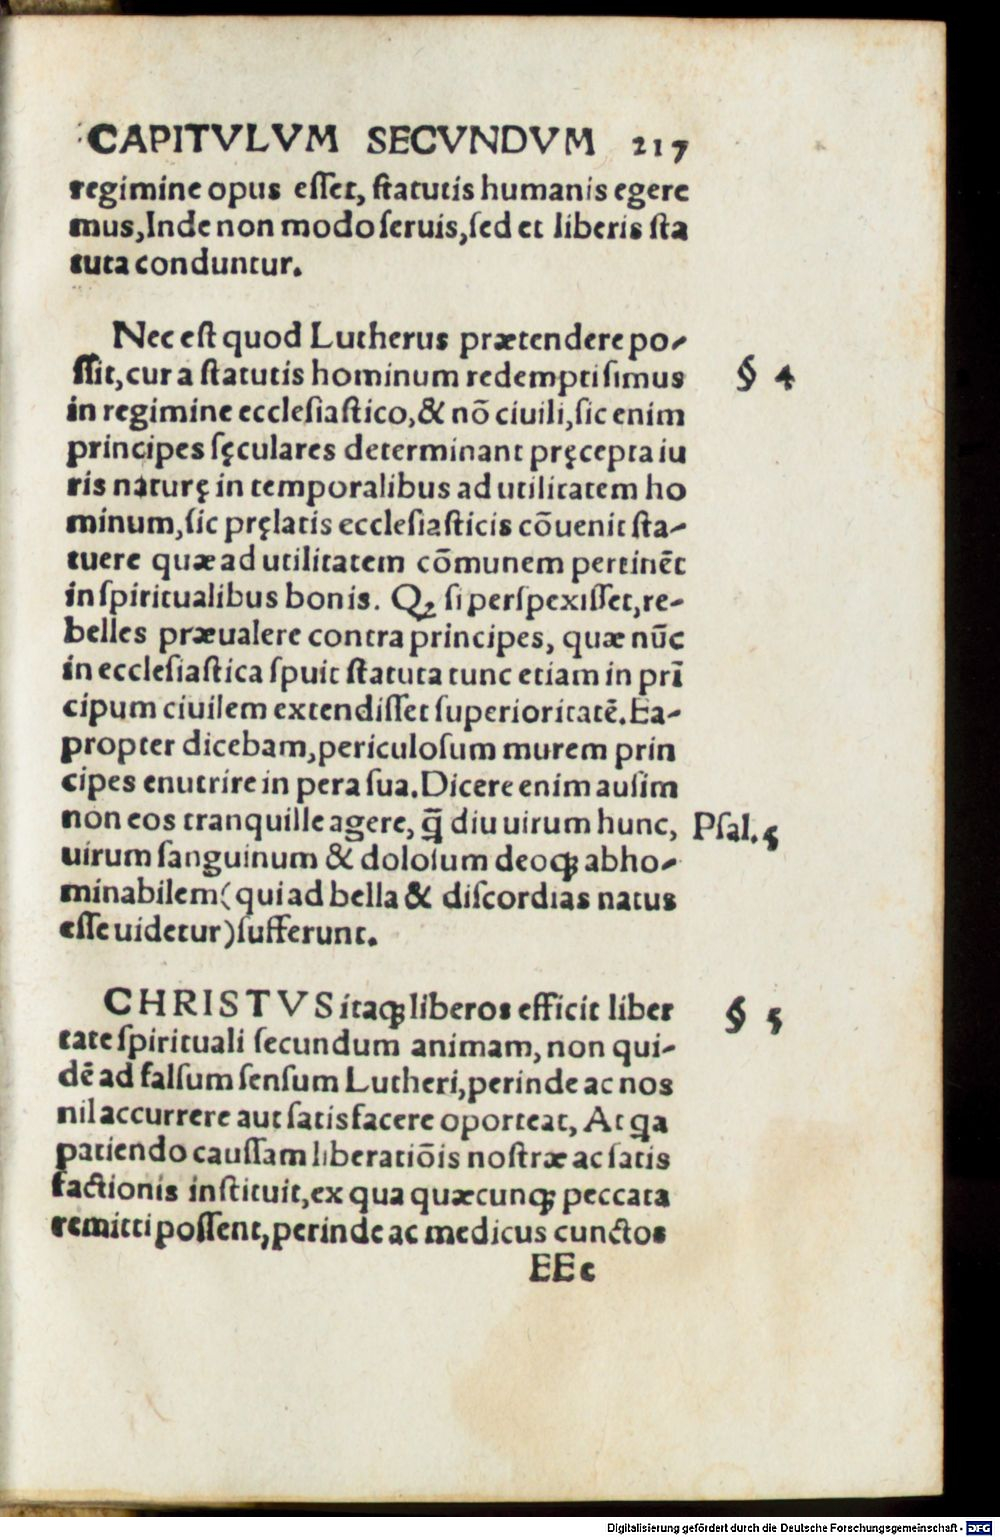 CAPITVLVM SECVNDVM 217
regimine opus eſſet, ſtatutis humanis egere
mus, Inde non modo ſeruis, ſed et liberis ſta
tuta conduntur.
Nec eſt quod Lutherus prætendere po-
ſſit, cur a ſtatutis hominum redempti ſimus
§ 4
in regimine eccleſiaſtico, & nō ciuili, ſic enim
principes ſęculares determinant pręcepta iu
ris naturę in temporalibus ad utilitatem ho
minum, ſic pręlatis eccleſiaſticis cōuenit ſta-
tuere quæ ad utilitatem cōmunem pertinēt
in ſpiritualibus bonis. Qꝫ ſi perſpexiſſet, re-
belles præualere contra principes, quæ nūc
in eccleſiaſtica ſpuit ſtatuta tunc etiam in prī
cipum ciuilem extendiſſet ſuperioritatē. Ea-
propter dicebam, periculoſum murem prin
cipes enutrire in pera ſua. Dicere enim auſim
non eos tranquille agere, q̄ diu uirum hunc,
Pſal. 5
uirum ſanguinum & doloſum deoqꝫ abho-
minabilem (qui ad bella & diſcordias natus
eſſe uidetur) ſufferunt.
CHRISTVS itaqꝫ liberos efficit liber
§ 5
tate ſpirituali ſecundum animam, non qui-
dē ad falſum ſenſum Lutheri, perinde ac nos
nil accurrere aut ſatisfacere oporteat, At qa
patiendo cauſſam liberatiōis noſtræ ac ſatis
factionis inſtituit, ex qua quæcunqꝫ peccata
remitti poſſent, perinde ac medicus cunctos
EEc
Digitalisierung gefördert durch die Deutsche Forschungsgemeinschaft - DFG